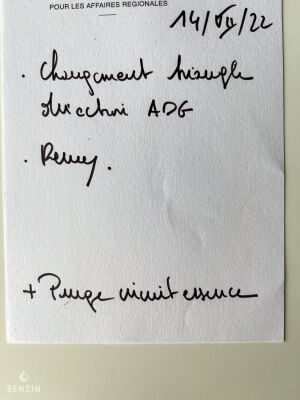 POUR LES AFFAIRES REGIONALES
14/VII/22
. Changement triangle
direction ADG
. Remy.
+ Purge circuit essence
BENZIN